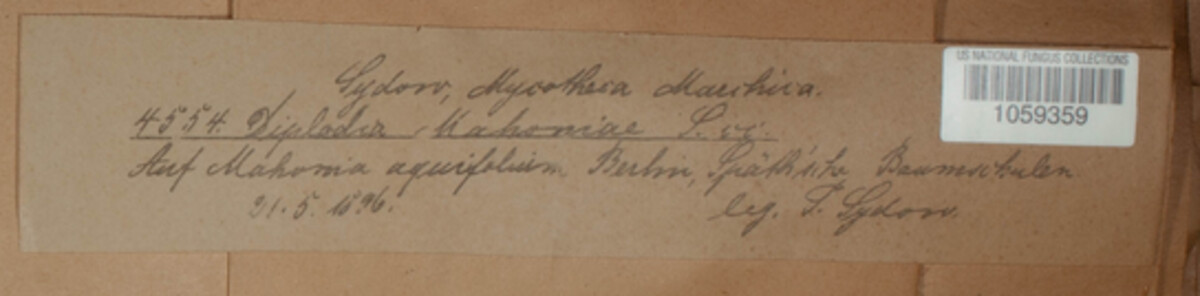 US NATIONAL FUNGUS COLLECTIONS
1059359
Sydow, Mycotheca Marchica.
4554. Diplodia Mahoniae
Auf Mahonia aquifolium. Berlin, Späth'sche Baumschulen
5. 1896.
leg. P. Sydow.